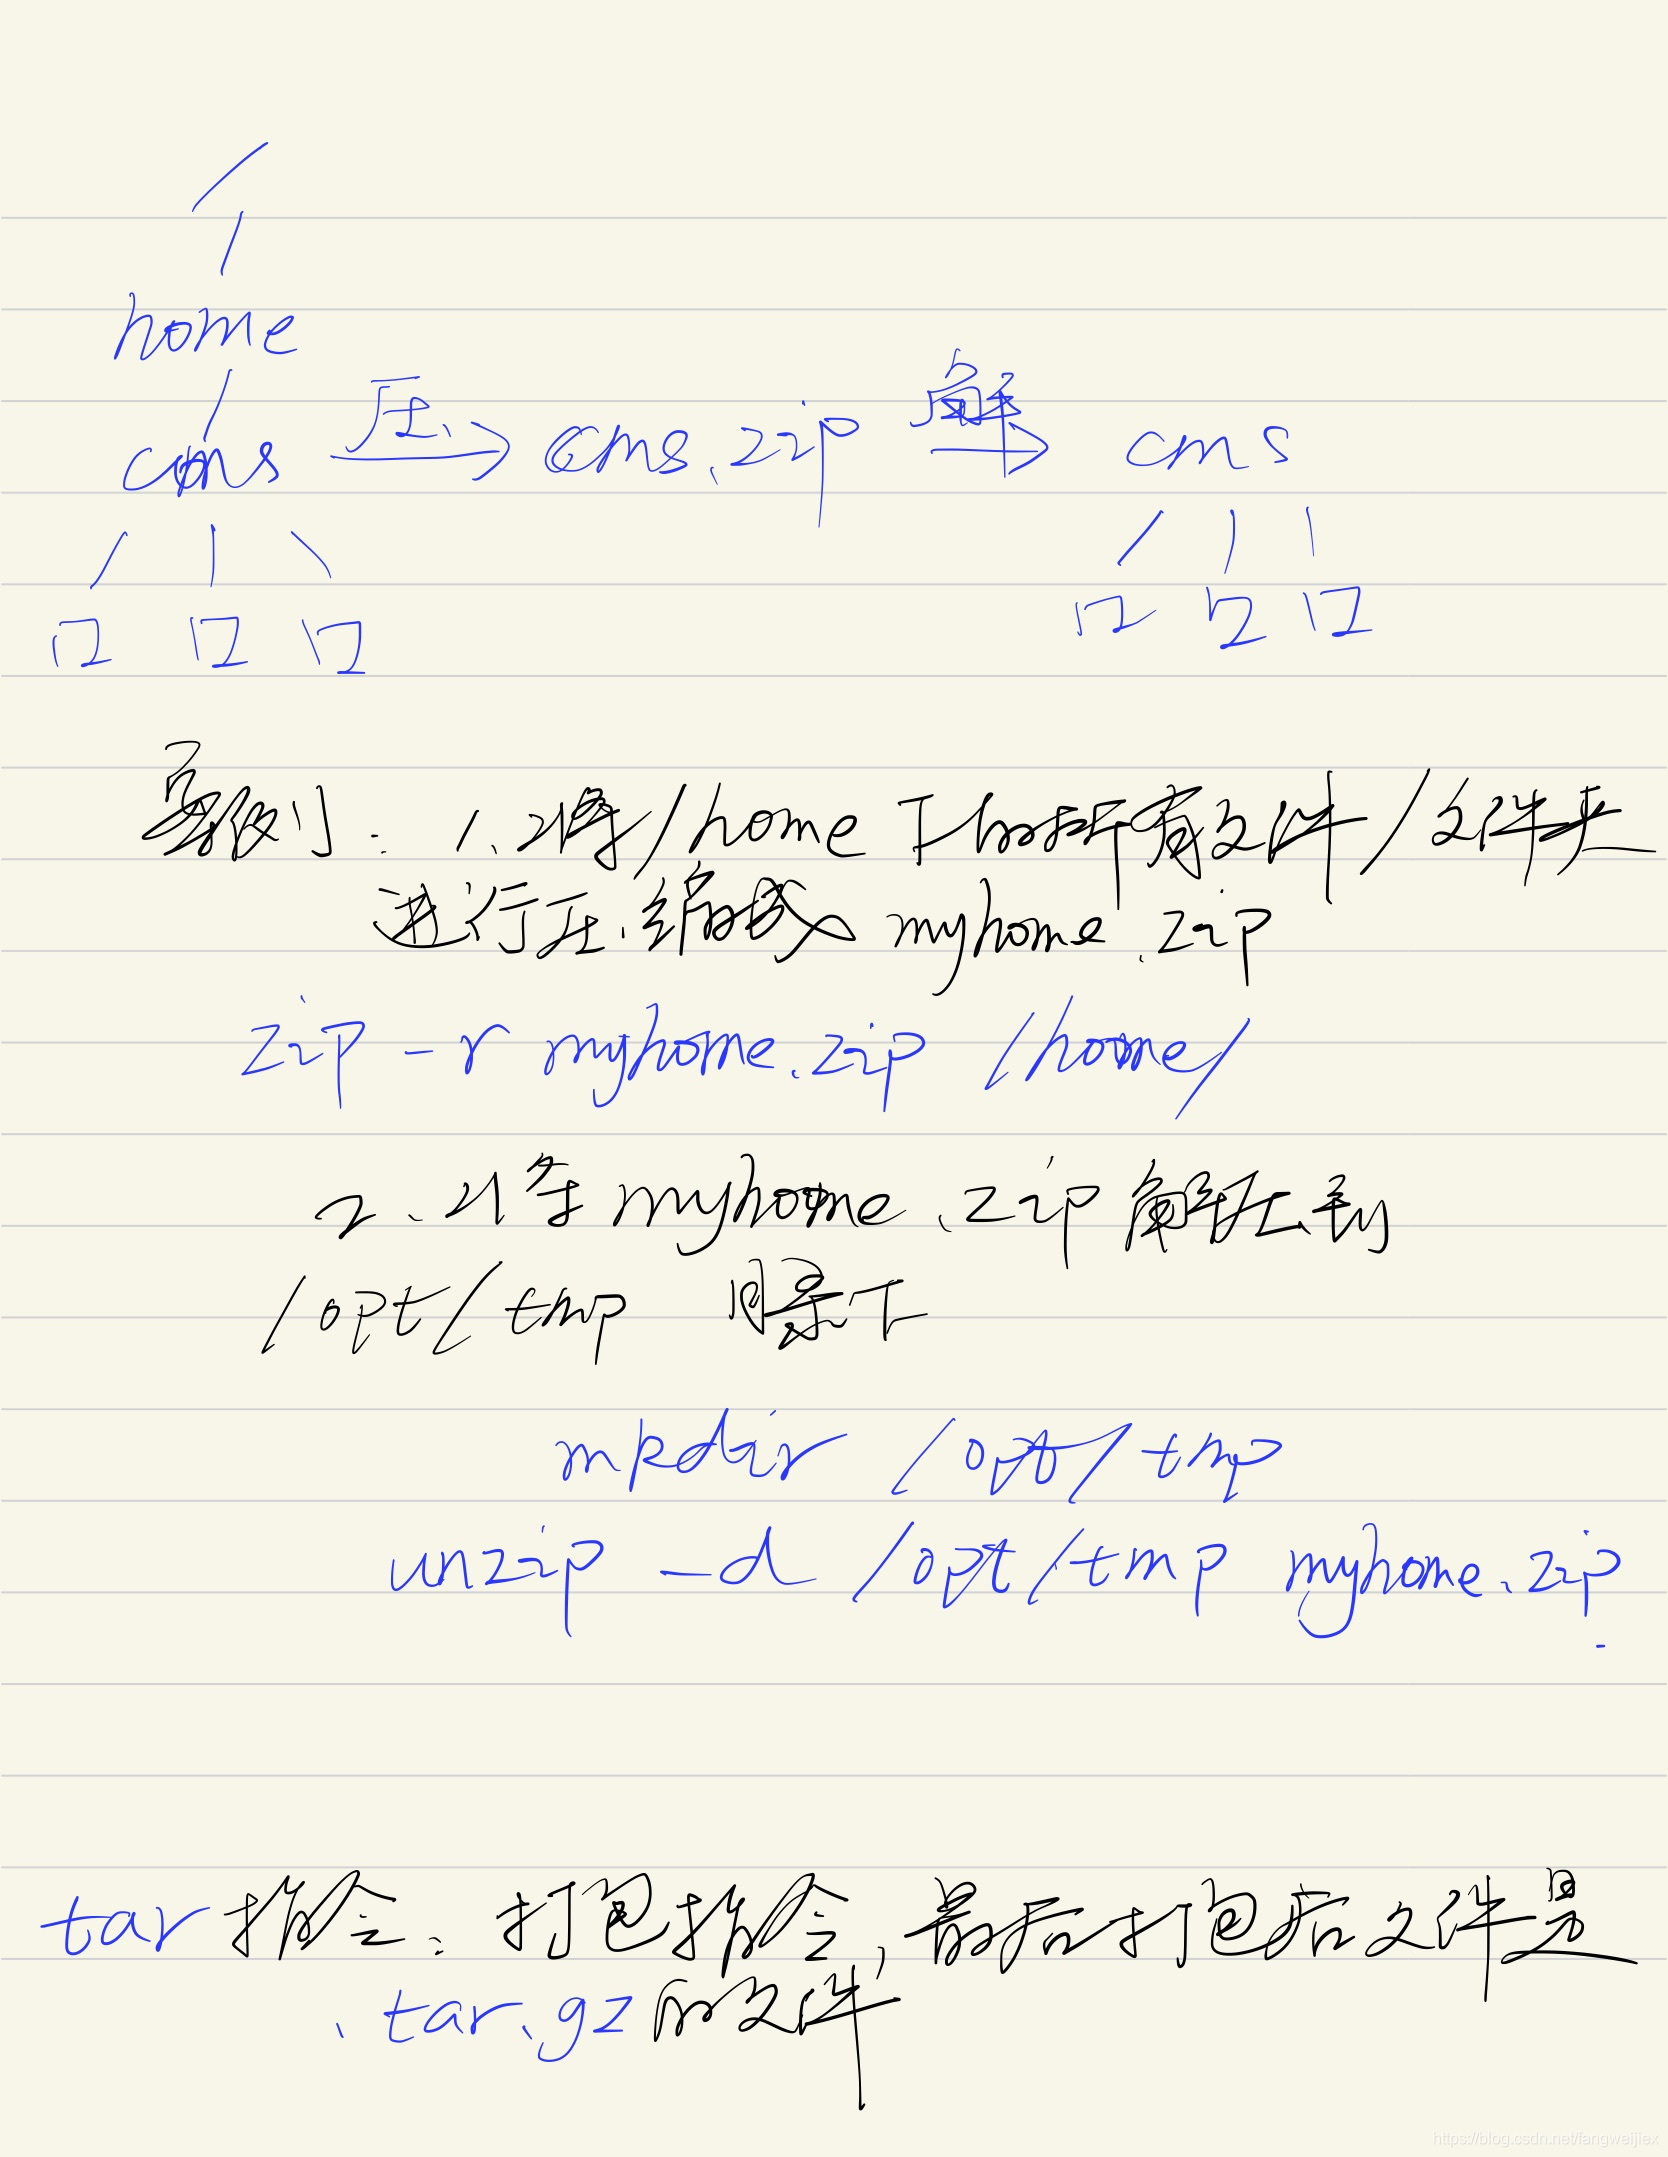 /
home
cms 压→ cms.zip 解→ cms
口 口 口 口 口 口
案例: 1、将/home下的所有文件/文件夹
进行压缩成 myhome.zip
zip -r myhome.zip /home/
2、将 myhome.zip 解压到
/opt/tmp 目录下
mkdir /opt/tmp
unzip -d /opt/tmp myhome.zip
tar 指令: 打包指令, 最后打包后文件是
.tar.gz 的文件
https://blog.csdn.net/fangweijiex